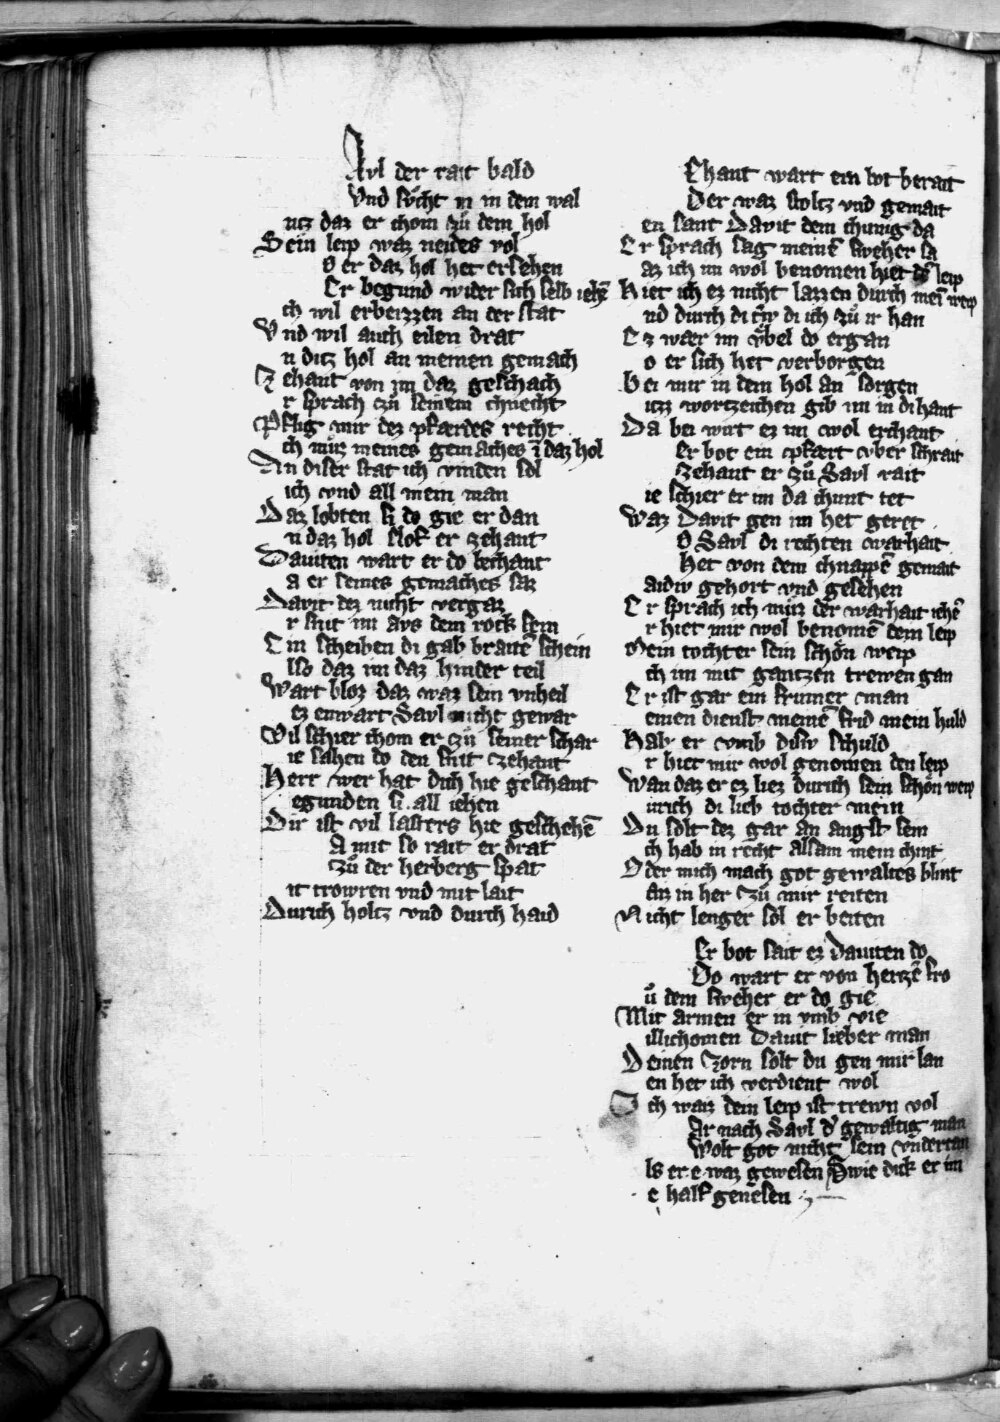 Avl der rait bald
Vnd sůcht in in dem wal
ntz daz er chom zů dem hol
Sein leip waz neides vol
o er daz hol het ersehen
Er begund wider sich selb iehē
ch wil erbeizzen an der stat
Vnd wil auch eilen drat
n ditz hol an meinen gemach
Zehant von im daz geschach
r sprach czů seinem chnecht
Pflig mir dez pfærdes recht
ch můz meines gemaches ī daz hol
An diser stat ich vinden sol
ich vnd all mein man
Daz lobten si do gie er dan
n daz hol slof er zehant
Dauiten wart er do bechant
a er seines gemaches saz
Dauit dez nicht vergaz
r snit im avs dem rock sein
Ein scheiben di gab brauē schein
lso daz im daz hinder teil
Wart bloz daz waz sein vnheil
ez enwart Savl nicht gewar
Vil schier chom er czů seiner schar
ie sahen do den snit czehant
Herr wer hat dich hie geschant
egunden si all iehen
Dir ist vil lasters hie geschehē
A mit so rait er drat
Zů der herberg spat
it trowren vnd mit lait
Durich holtz vnd durch haid
Ehant wart ein bot berait
Der waz stoltz vnd gemait
en sant Dauit dem chunig da
Er sprach sag meinē sweher sa
az ich im wol benomen hiet dē leip
Hiet ich ez nicht lazzen durch mei weip
nd durch di triw di ich zů ir han
Ez wær im v̊bel do ergan
o er sich het verborgen
Bei mir in dem hol an sorgen
itz wortzeichen gib im in di hant
Da bei wirt ez im wol erchant
Er bot ein pfært vber schrait
Zehant er zů Savl rait
ie schier er im da chunt tet
Waz Dauit gen im het geret
O Savl di rechten warhait
Het von dem chnappē gemait
aidiv gehort vnd gesehen
Er sprach ich můz der warhait iehē
r hiet mir wol benomē dem leip
Mein tochter sein schön weip
ch im mit gantzen trewen gan
Er ist gar ein frumer man
einen dienst meinē frid mein huld
Hab er vmb disiv schuld
r hiet mir wol genomen den leip
Wan daz er ez liez durich sein schön weip
urich di lieb tochter mein
Du solt dez gar an angst sein
ch hab in recht allsam mein chint
Oder mich mach got gewaltes blint
az in her czů mir reiten
Nicht lenger sol er beiten
Er bot sait ez Dauiten do
Do wart er von hertzē fro
ů dem sweher er do gie
Mit armen er in vmb vie
illichomen Dauit lieber man
Deinen Zorn solt du gen mir lan
en het ich verdient wol
Ich waiz dein leip ist trewn vol
Ar nach Savl d' gewaltig man
Wolt got nicht sein vndertan
ls er e waz gewesen Swie dick er im
e half genesen